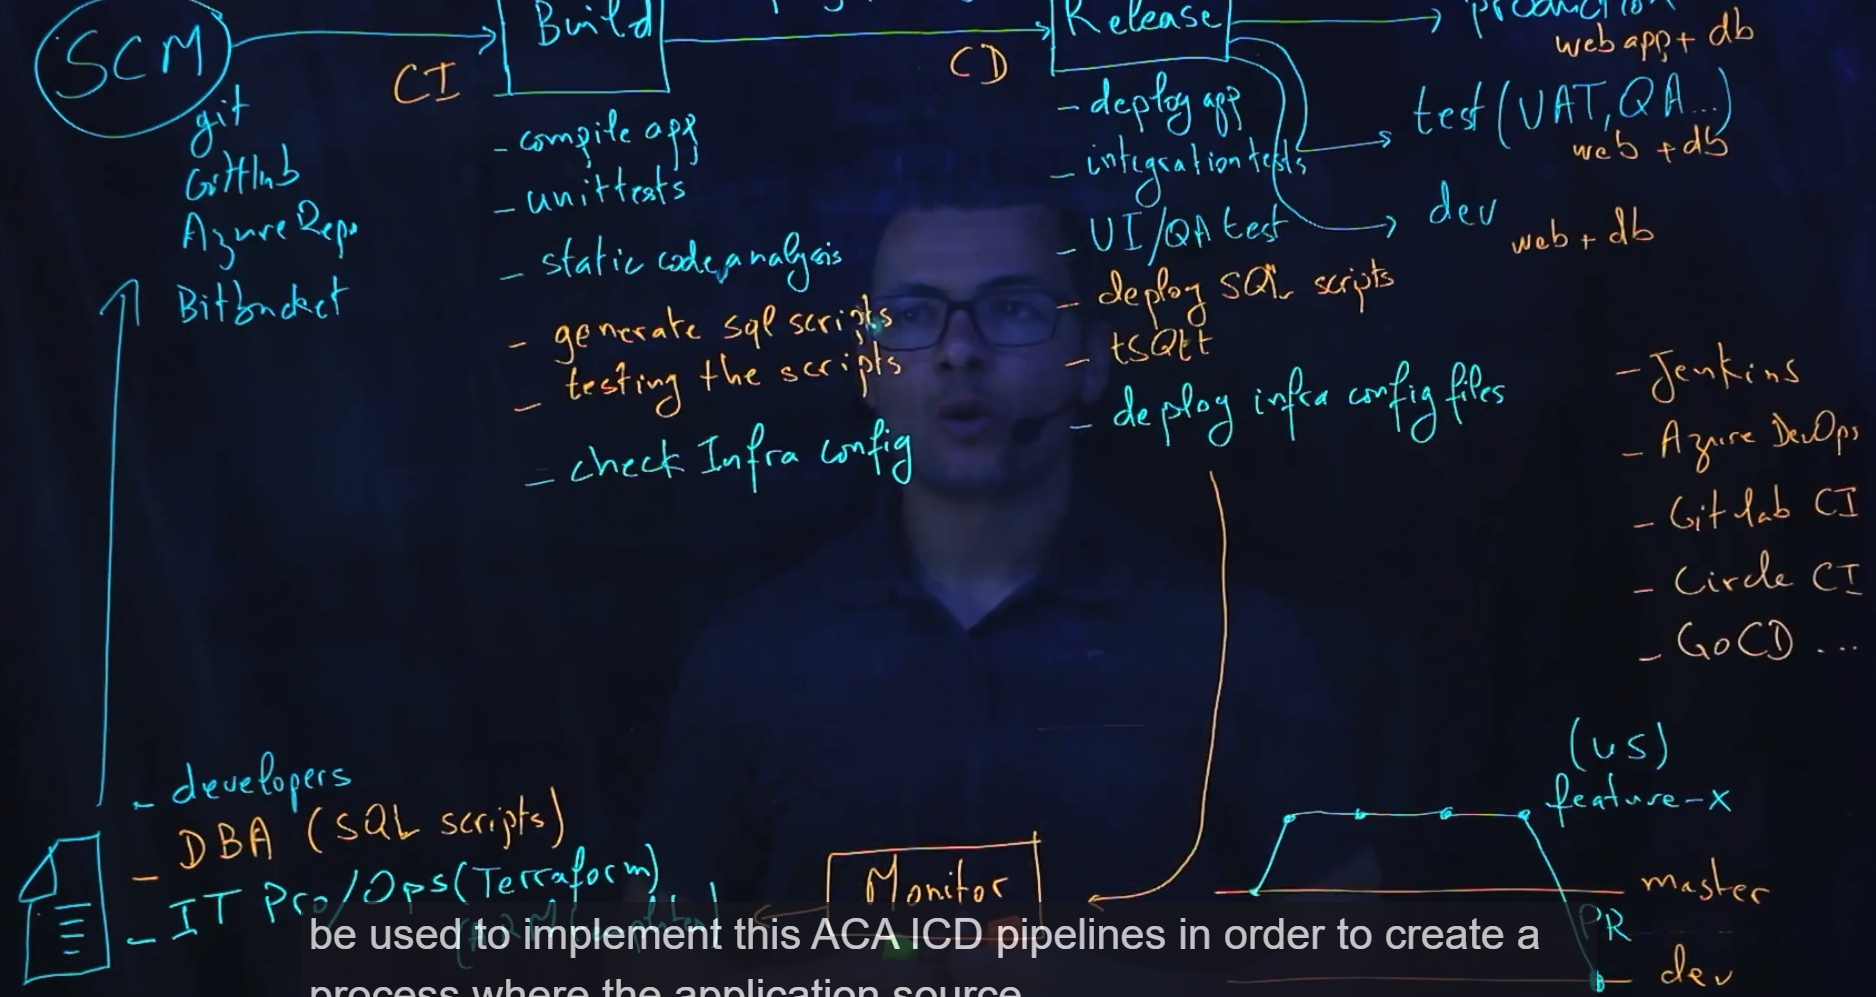 SCM
CI
Build
CD
Release
production
web app + db
git
GitHub
Azure Repo
Bitbucket
- compile app
- unit tests
- static code analysis
- generate sql scripts
- testing the scripts
- check Infra config
- deploy app
- integration tests
- UI/QA test
- deploy SQL scripts
- tSQLt
- deploy infra config files
test (UAT, QA...)
web + db
dev
web + db
- Jenkins
- Azure DevOps
- Gitlab CI
- Circle CI
- GoCD ...
- developers
- DBA (SQL scripts)
- IT Pro/Ops (Terraform)
Monitor
(US)
feature-x
master
PR
dev
be used to implement this ACA ICD pipelines in order to create a
process where the application source